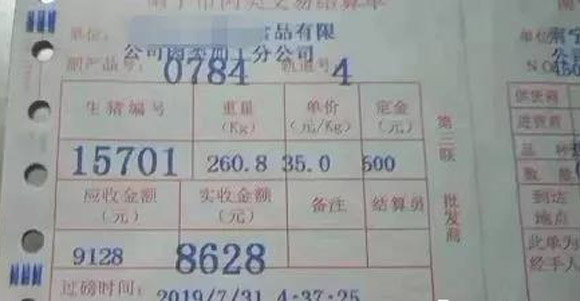 南宁市肉类交易结算单
单位: 食品有限
公司肉类加工分公司
副产品号: 0784 轨道号 4
生猪编号 重量 (Kg) 单价 (元/Kg) 定金 (元)
15701 260.8 35.0 500
应收金额 (元) 实收金额 (元) 备注 结算员
9128 8628
过磅时间 2019/7/31 4:37:25
第三联
批发商
单位: 南宁
NO
供货商
进货商
品种
数量
到达
地点
此单为
经手人